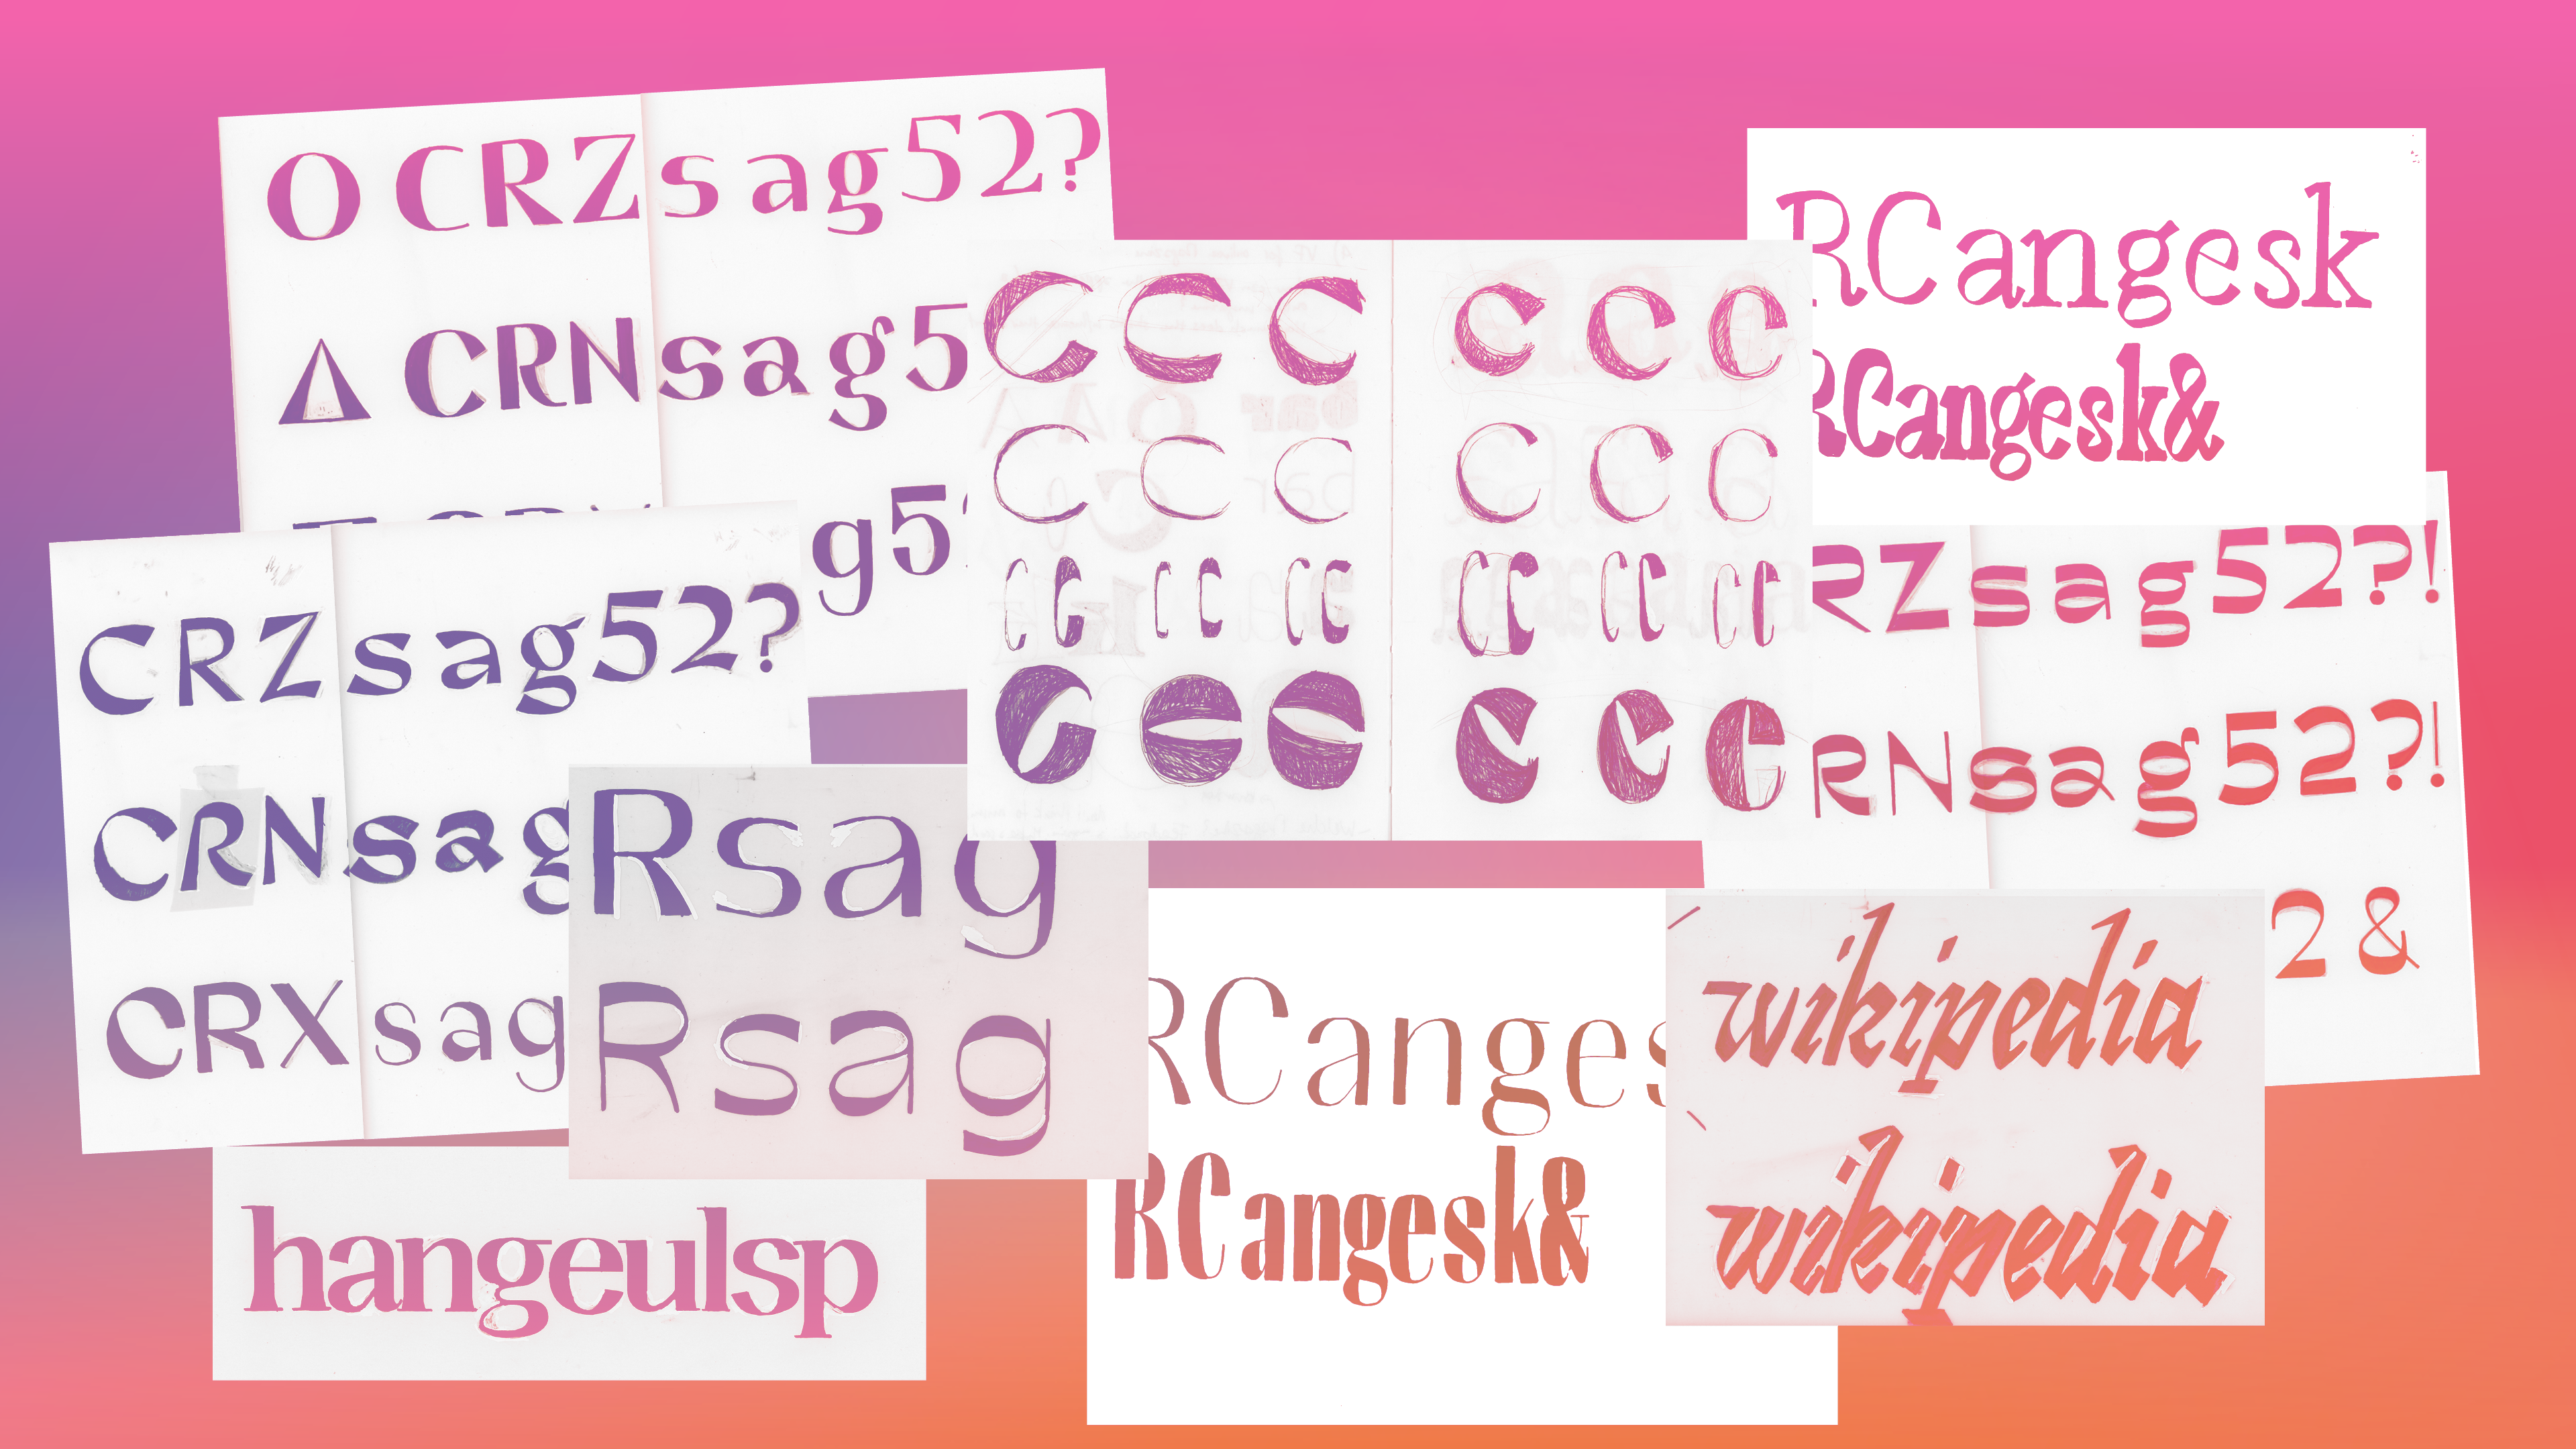 O CRZ sag52?
CRN sag5
g5
CRZ sag52?
CRN sag
CRX sag
Rsag
Rsag
hangeulsp
C C C C C C
C C C C C C
CC CC CC CC CC CC
C C C C C C
RCangesk
RCangesk&
RZ sag52?!
RN sag52?!
2&
RCanges
RCangesk&
wikipedia
wikipedia